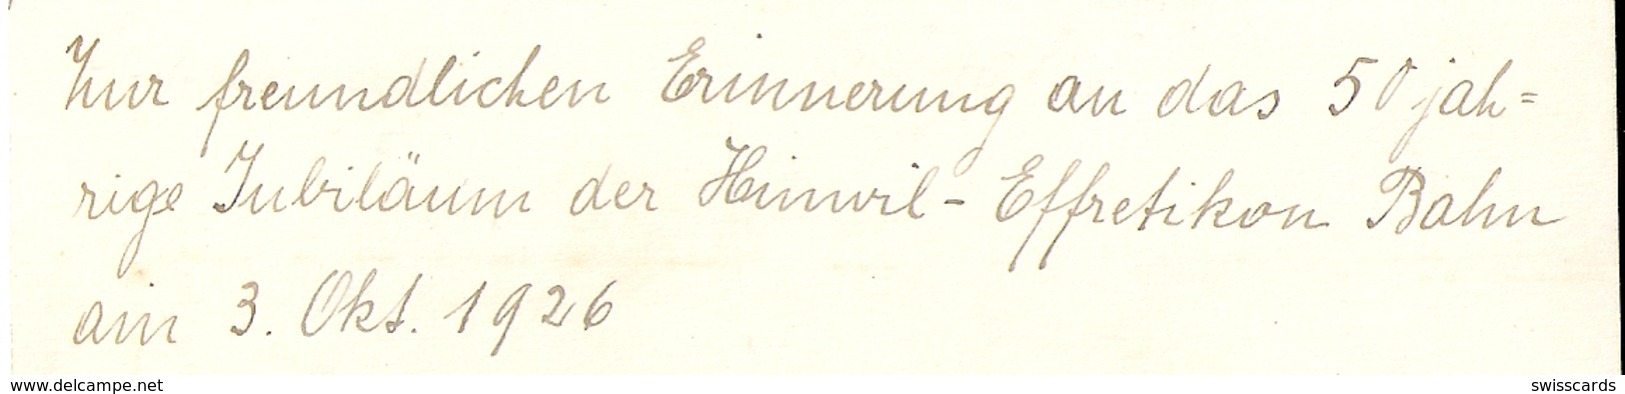 Zur freundlichen Erinnerung an das 50 jäh=
rige Jubiläum der Hinwil - Effretikon Bahn
am 3. Okt. 1926
www.delcampe.net
swisscards